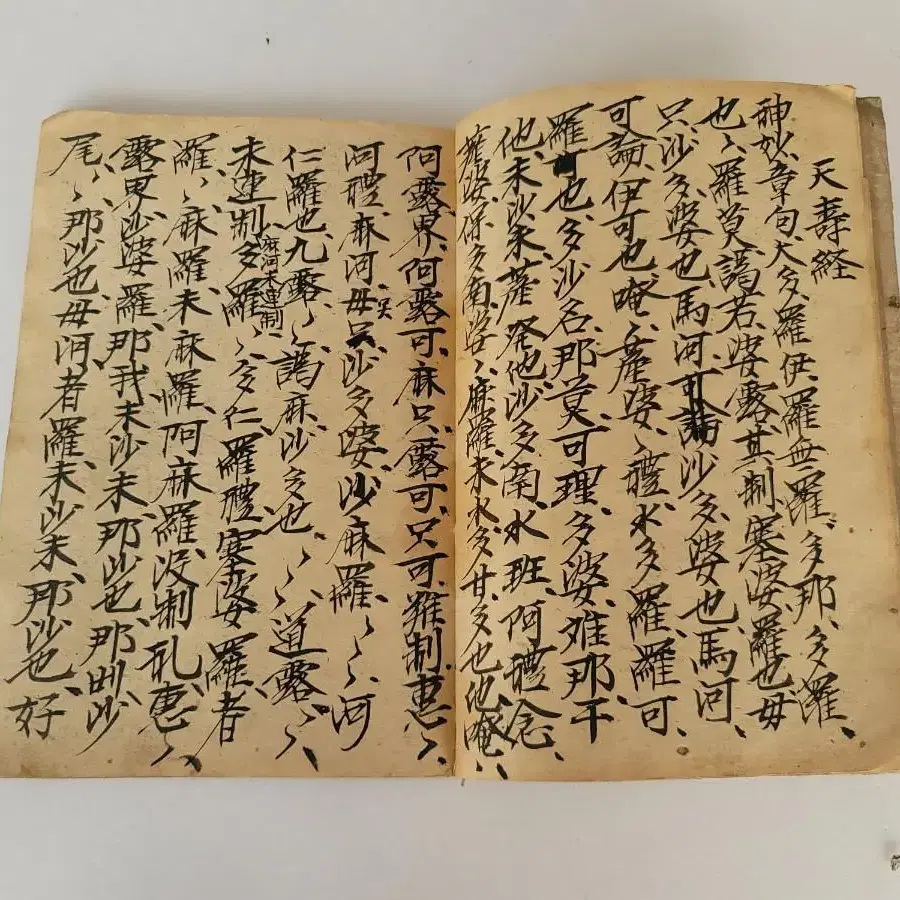 天壽経
神妙章句大多羅伊羅無羅、多那、多羅、
也ヽ羅莫謁若婆露其制塞婆羅也毋
只沙多婆也馬河可論沙多婆也馬河
可論伊可也唵產婆ヽ禮水多羅羅可
羅也多沙名那莫可理多婆难那干
他未沙未產發他沙多南水班阿禮念
婆保多南婆ヽ麻羅未水多甘多也他唵
阿露界阿露可麻只露可只可難制惠ヽ
河禮麻河毋沙多婆沙麻羅ヽヽ河
仁羅也九露ヽ謁麻沙多也ヽヽ道露ヽ
未連制麻河未連制多羅ヽ多仁羅禮塞婆羅者
羅ヽ麻羅未麻羅阿麻羅沒制礼惠ヽ
露界沙婆羅那我未沙未那沙也那沙
尾ヽ那沙也毋河者羅未沙未那沙也好